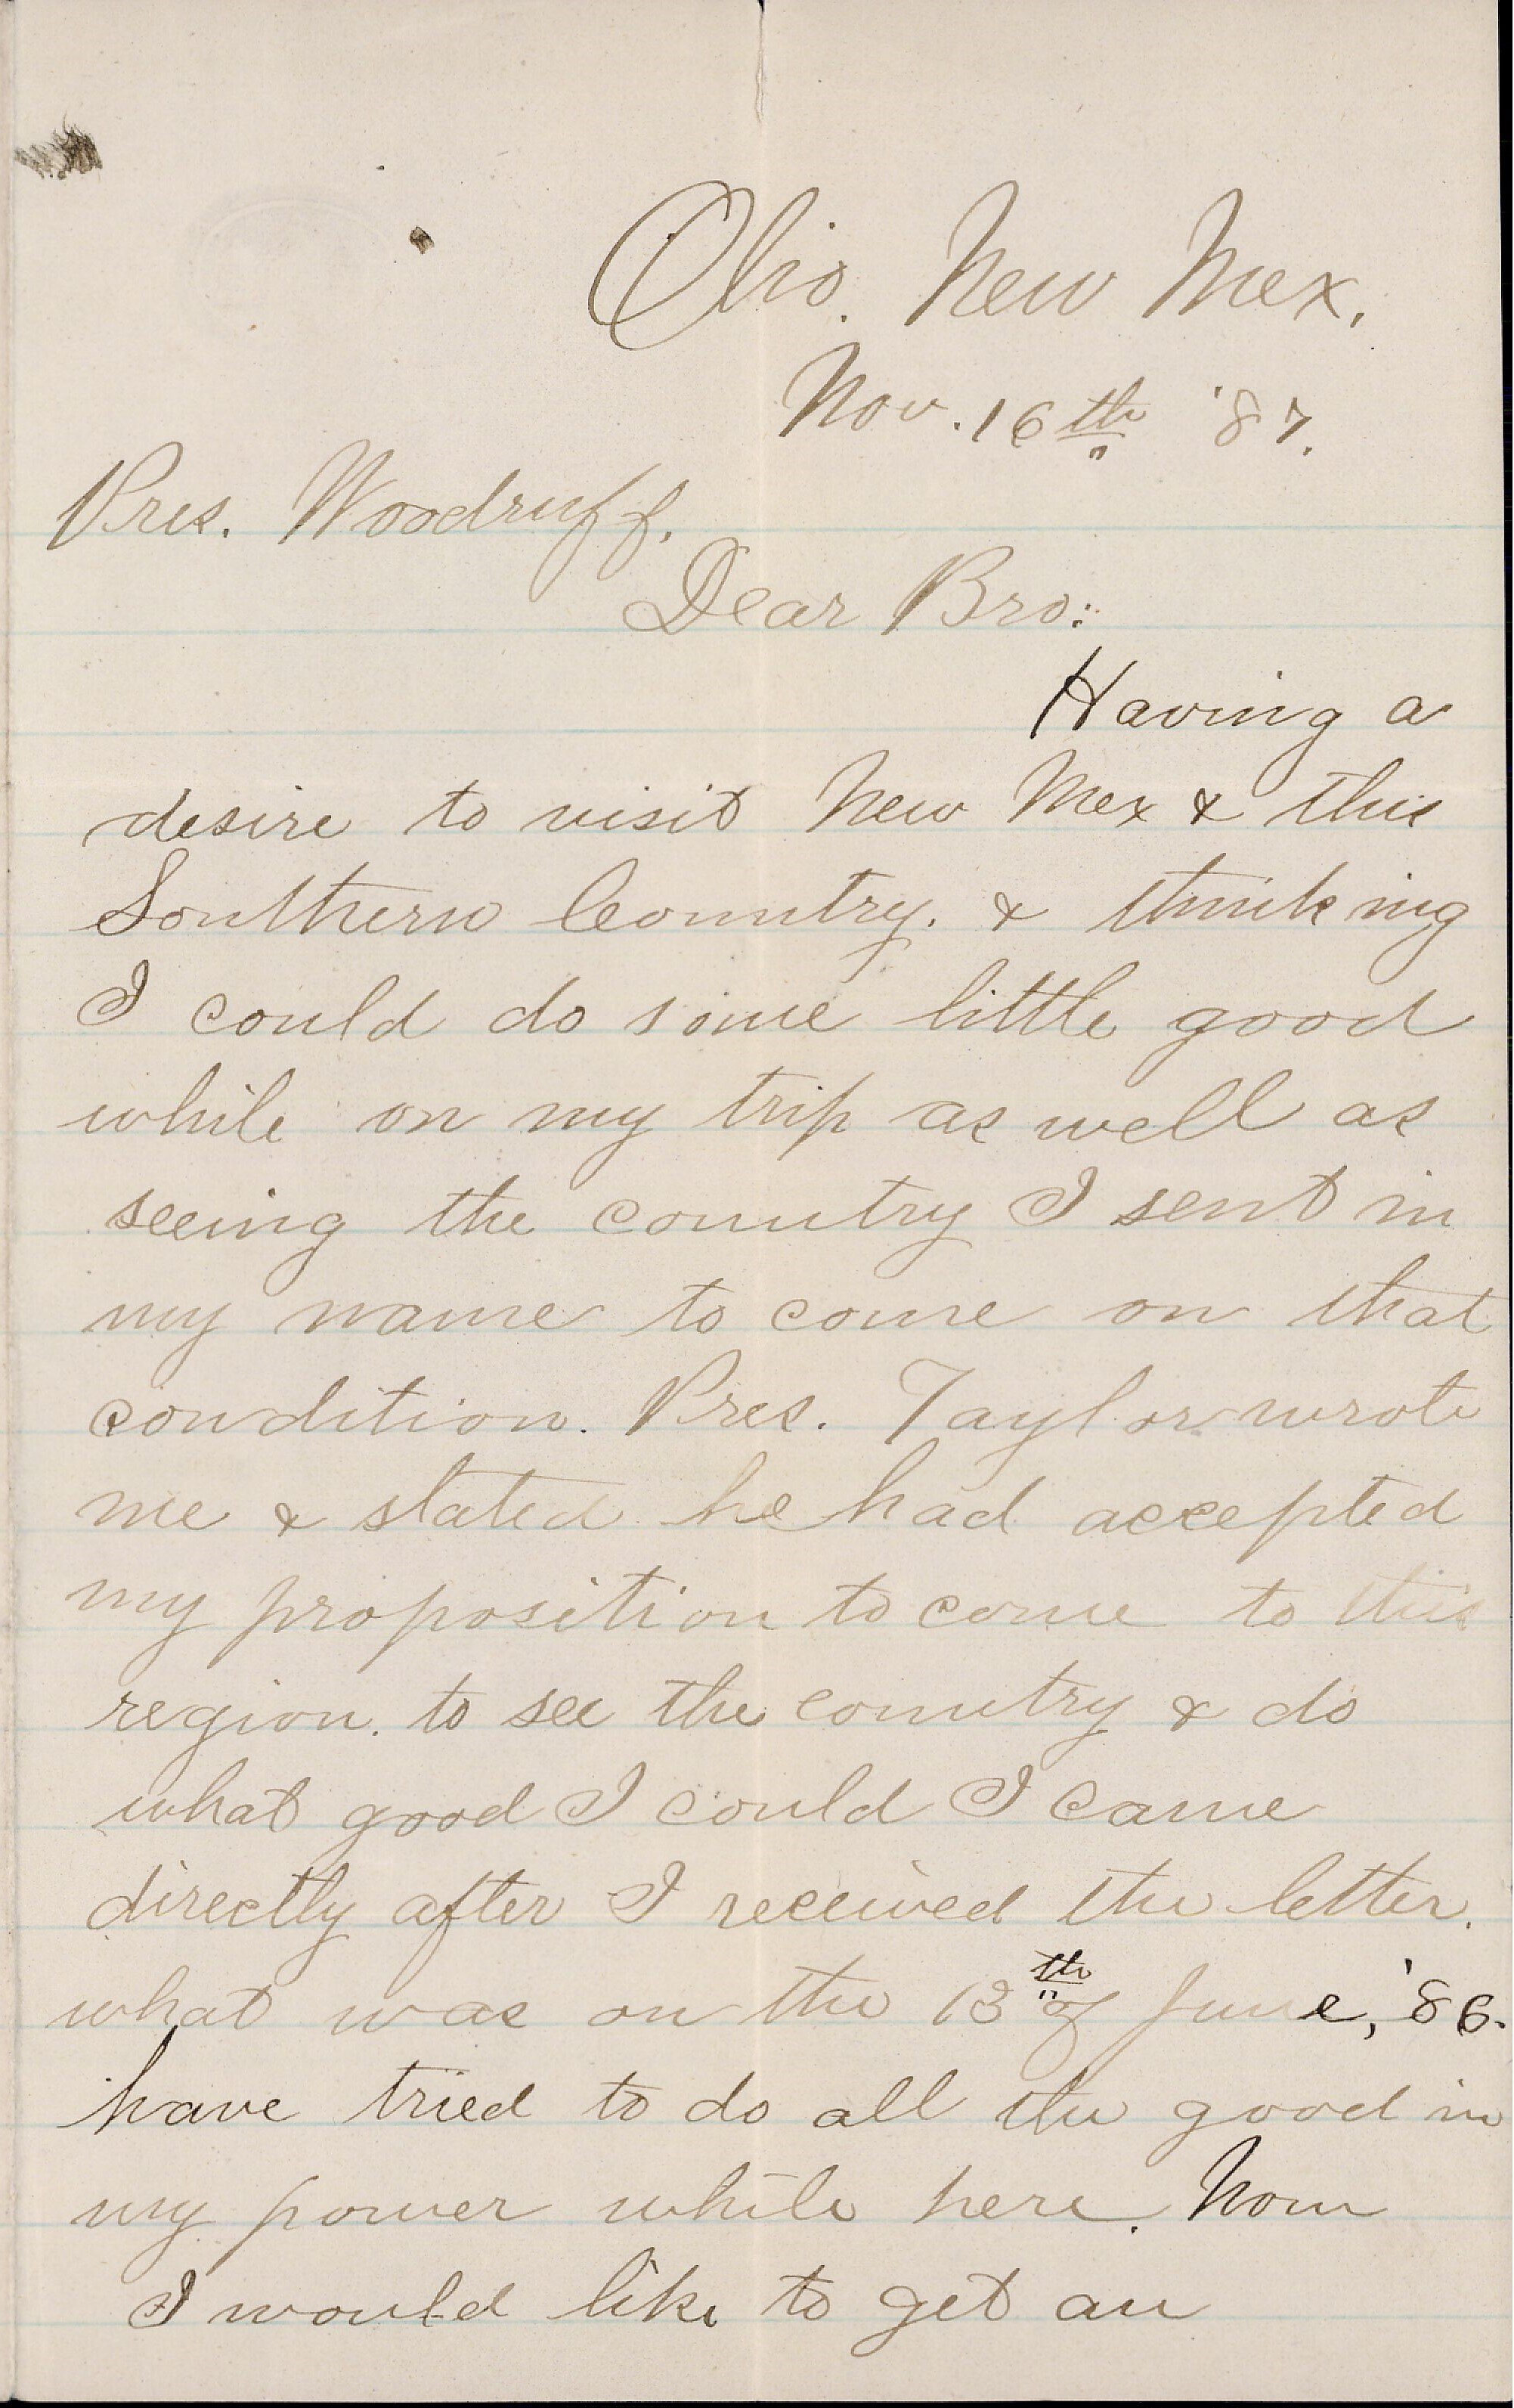 Olio. New Mex.
Nov. 16th '87.
Pres. Woodruff.
Dear Bro:
Having a
desire to visit New Mex & this
Southern Country. & thinking
I could do some little good
while on my trip as well as
seeing the country I sent in
my name to come on that
condition. Pres. Taylor wrote
me & stated he had accepted
my proposition to come to this
region. to see the country & do
what good I could I came
directly after I received the letter.
what was on the 13th of June, '86.
have tried to do all the good in
my power while here. Now
I would like to get an